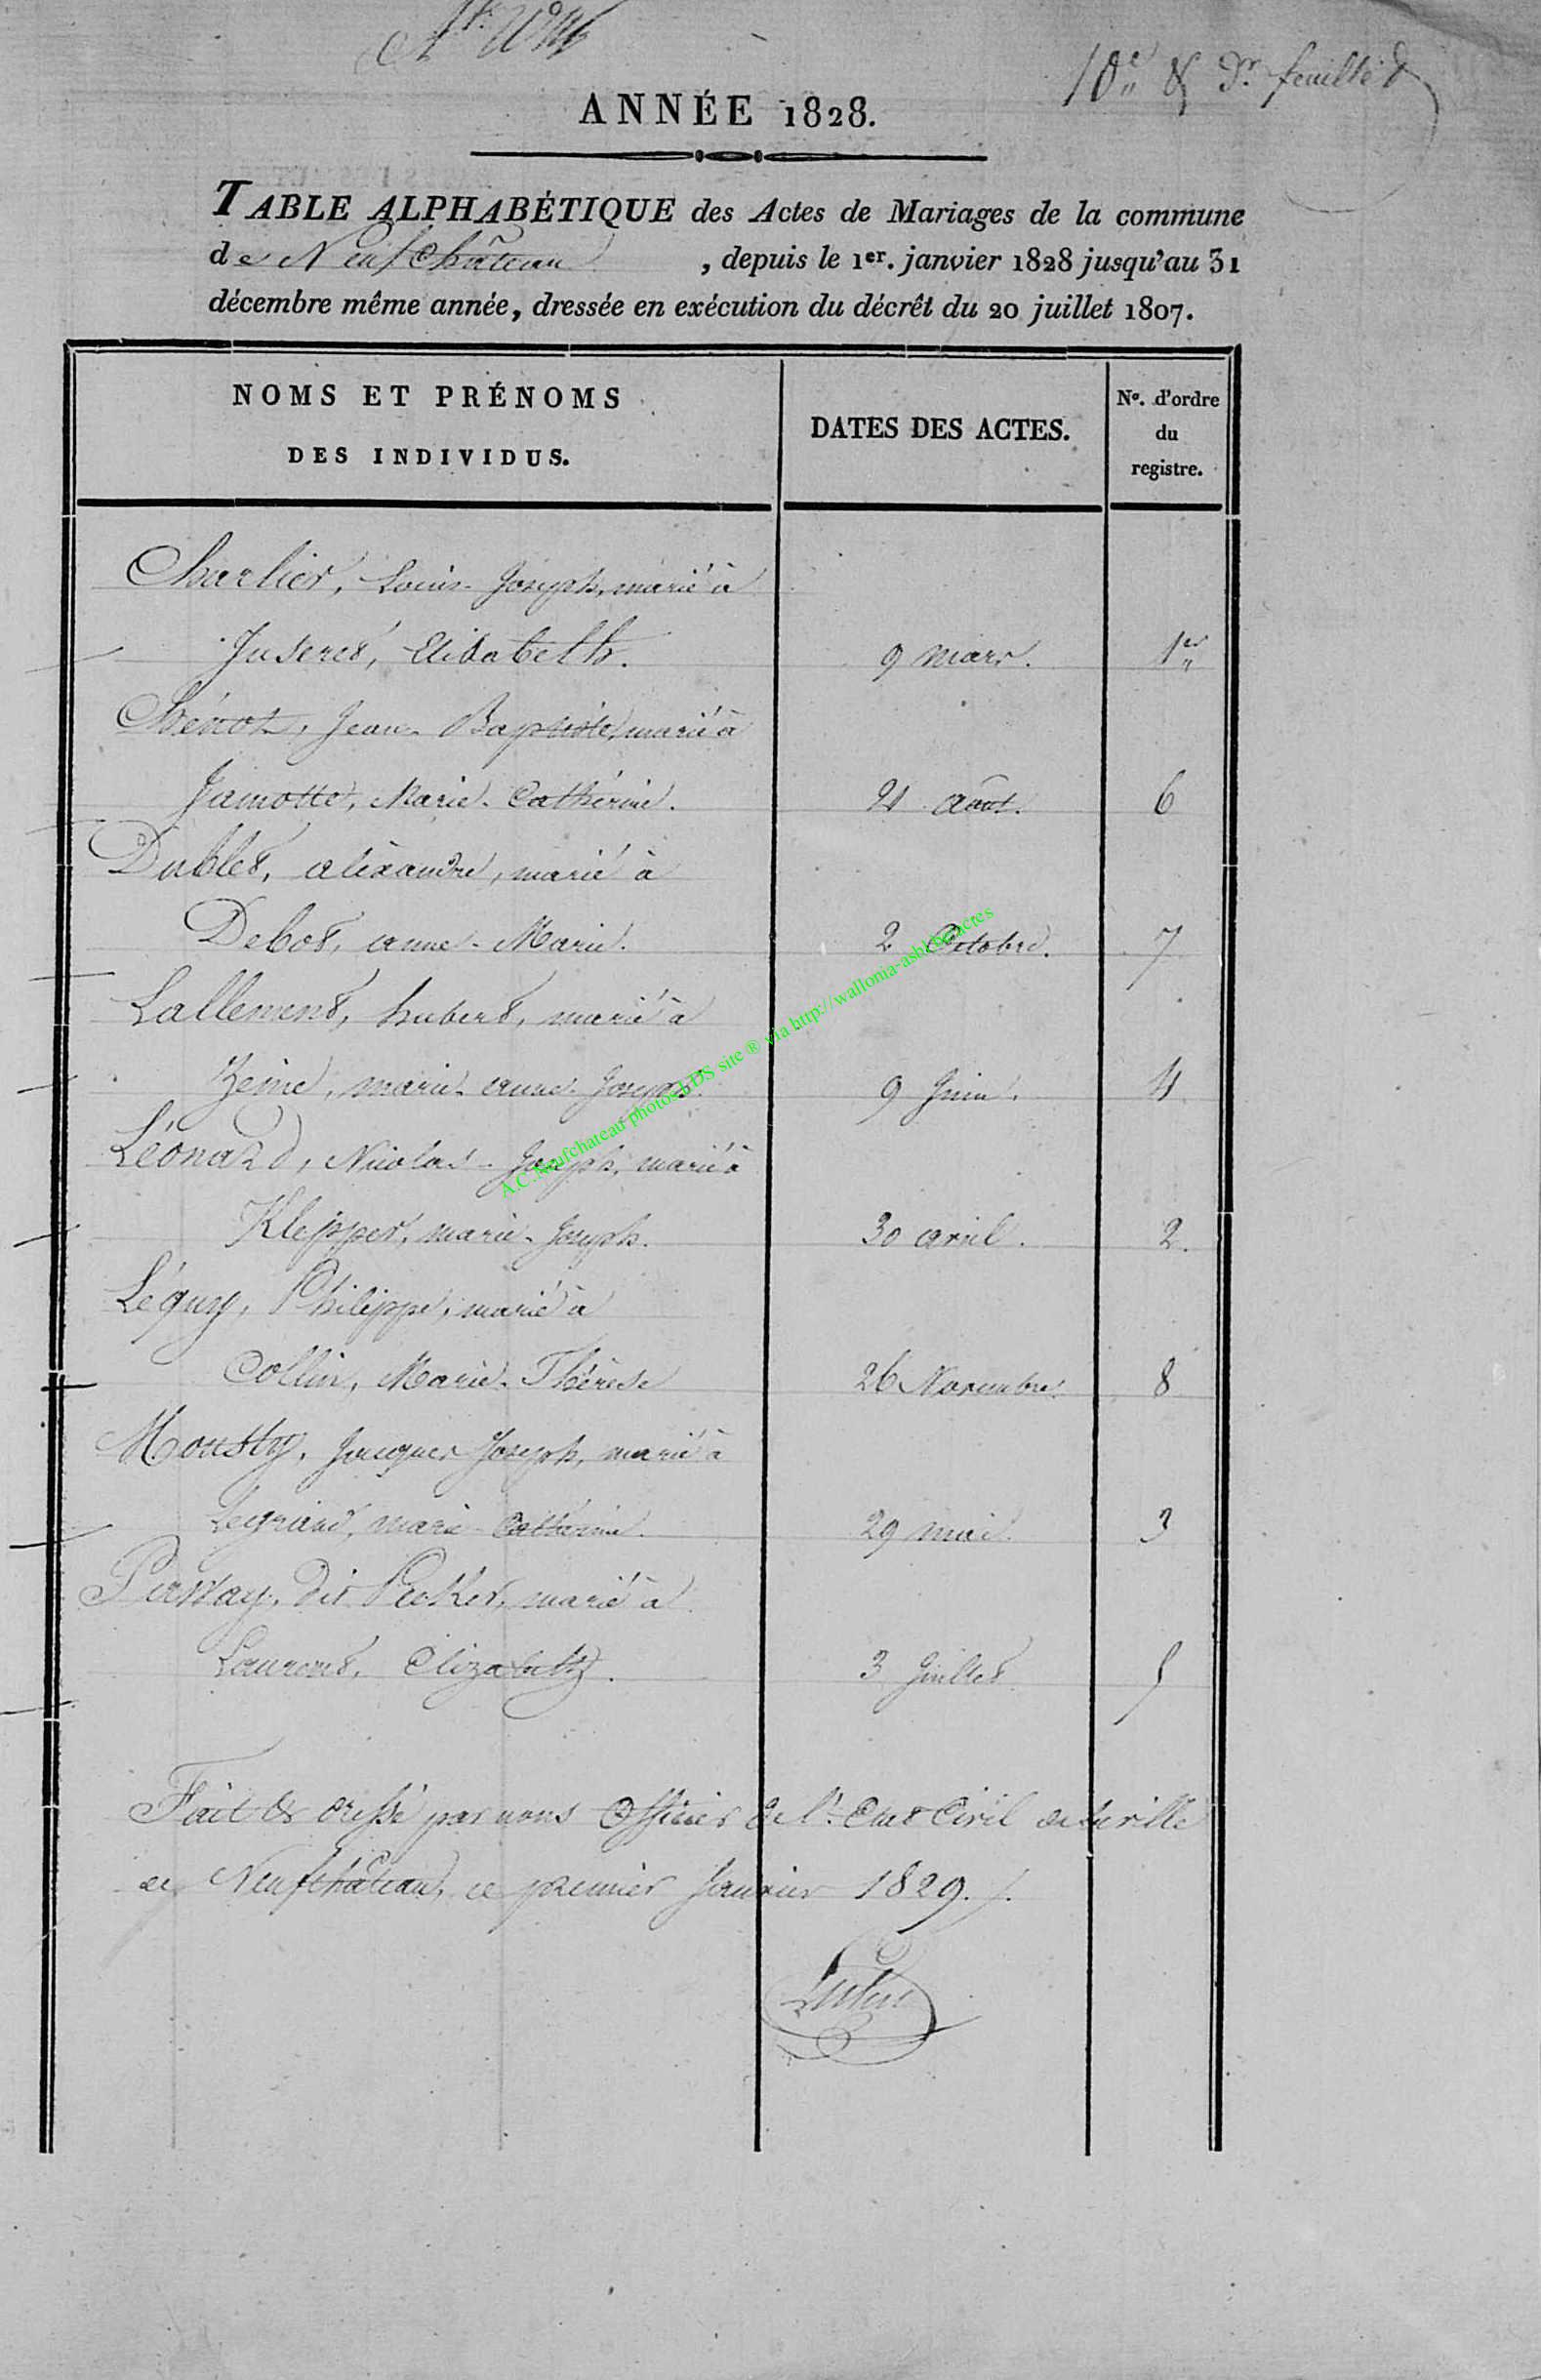 10e & dr. feuillet
ANNÉE 1828.
TABLE ALPHABÉTIQUE des Actes de Mariages de la commune
de Neufchâteau, depuis le 1er. janvier 1828 jusqu'au 31
décembre même année, dressée en exécution du décrêt du 20 juillet 1807.
NOMS ET PRÉNOMS DES INDIVIDUS. DATES DES ACTES. No. d'ordre du registre.
Charlier, Louis-Joseph, marié à
Juseret, Elisabeth. 9 mars. 1er
Chénot, Jean-Baptiste, marié à
Jamotte, Marie-Cathérine. 21 août. 6
Dublet, aléxandre, marié à
Debot, anne-Marie. 2 Octobre. 7
Lallement, hubert, marié à
Zeine, marie-anne-Joseph. 9 Juin. 4
Léonard, Nicolas-Joseph, marié à
Klepper, marie-Joseph. 30 avril. 2.
Léguy, Philippe, marié à
Collin, Marie-Thérèse 26 Novembre. 8
Mousty, Jacques Joseph, marié à
Legrand, marie-Catherine. 29 mai. 3
dit Pecker, marié à
Laurent, Elizabeth. 3 Juillet 5
Fait & dressé par nous Officier de l'Etat Civil de la ville
de Neufchâteau, ce premier Janvier 1829.
A.C. Neufchateau photos LDS site ® via http://wallonia-asbl.be/actes